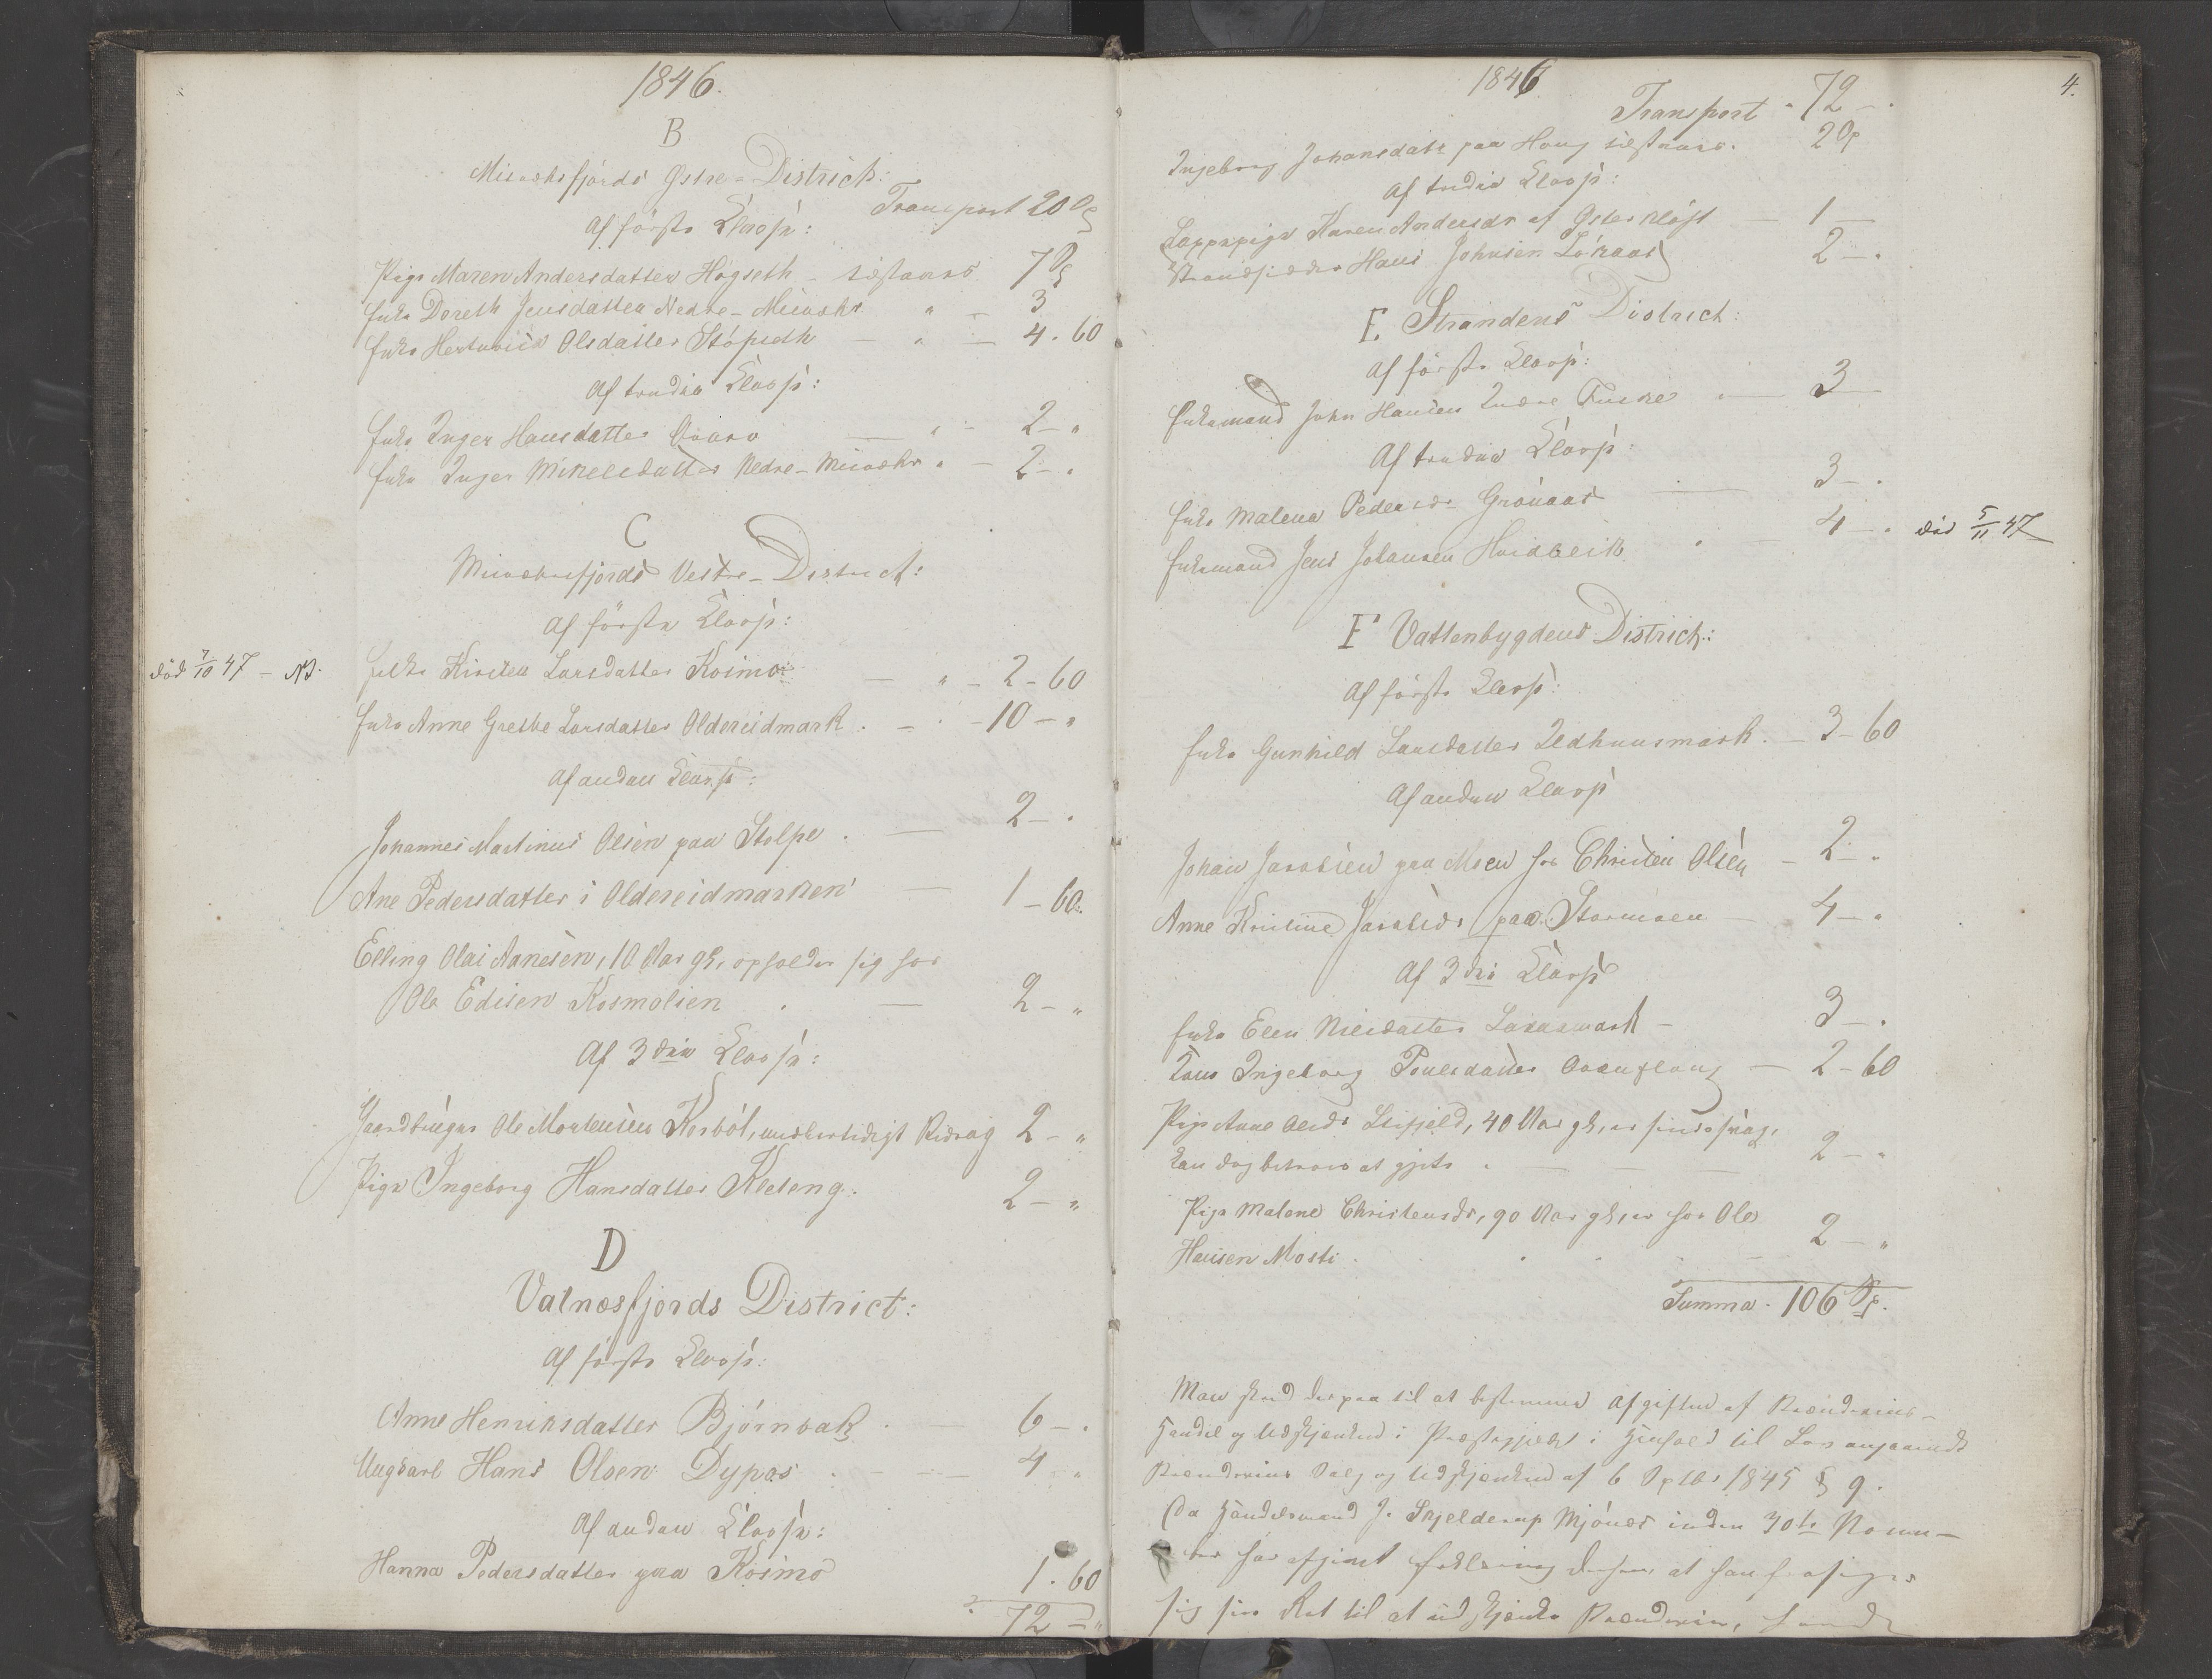 1846.
B
Misværfjords Østre-District:
Transport 20 Sp
Af første Klasse:
Pige Maren Andersdatter Høgseth - tilstaaes 7 Sp
Enke Doreth Jensdatter Nedre-Misvær " - 3
Enke Olsdatter Støpseth - " - 4. 60
Af tredie Klasse:
Enke Inger Hansdatter - " - 2 - "
Enke Inger Mikelsdatter Nedre-Misvær " - 2 - "
C
Misværfjords Vestre-District:
Af første Klasse:
død 7/10 47 - NB. Enke Kirsten Larsdatter Kosmo - " - 2 - 60
Enke Anne Grethe Larsdatter Oldereidmark . - . - 10 - "
Af anden Klasse:
Johannes Martinus Olsen paa Stolpe . - 2 - .
Ane Pedersdatter i Oldereidmarken - 1 - 60.
Elling Olai Aanesen, 10 Aar gl, opholder sig hos
Ole Edisen Kosmolien . - 2 - "
Af 3die Klasse:
Gaardbruger Ole Mortensen Kosbøl, midlertidigt Bidrag 2 - "
Pige Ingeborg Hansdatter Kleteng . 2 - "
D
Valnesfjords District:
Af første Klasse:
Anne Henriksdatter Bjørnbak . - 6 - .
Ungkarl Hans Olsen Dypos . - - 4 "
Af anden Klasse:
Hanna Pedersdatter paa Kosmo 1. 60
72 - "
4.
1846
Transport . 72 - .
Ingeborg Johansdatr paa Haug tilstaaes . 2 Sp
Af tredie Klasse:
Lappepige Karen Andersdr af Østerkløft - 1 -
Strandsidder Hans Johnsen Løkaas 2 - .
E Strandens District:
Af første Klasse:
Enkemand John Hansen Indre - 3 -
Af tredie Klasse:
Enke Malena Pedersdr Grønaas - 3 - .
Enkemand Jens Johansen Hvidbeik . - 4 - . død 5/11 47
F Vattenbygdens District:
Af første Klasse:
Enke Gunhild Larsdatter Ledhuusmark . - 3 - 60
Af anden Klasse
Johan Jacobsen paa Moen hos Christen Olsen - 2 - "
Anne Kristine Jacobsdr paa Stormoen - 4 - "
Af 3die Klasse
Enke Elen Nilsdatter Laxaamark - 3 - .
Kone Ingeborg Poulsdatter - 2 - 60
Pige Anne Olsdr Leifjeld, 40 Aar gl, er sindssvag,
kan dog betroes at gjete . - - - 2 - "
Pige Malene Christensdr, 90 Aar gl, er hos Ole
Hansen Mosti . . . - - 2 - "
Summa . 106 Sp.
Man skred derpaa til at bestemme Afgiften af Brændeviins-
handel og Udskjenkning i Præstegjeldet i Henhold til Lov angaaende
Brændeviins Salg og Udskjenkning af 6 Septbr 1845 § 9.
Da Handelsmand J. Skjelderup Mjønes inden 30te Novem-
ber har afgivet Erklæring derom at han frasiger
sig sin Ret til at udskjenke Brændeviin,